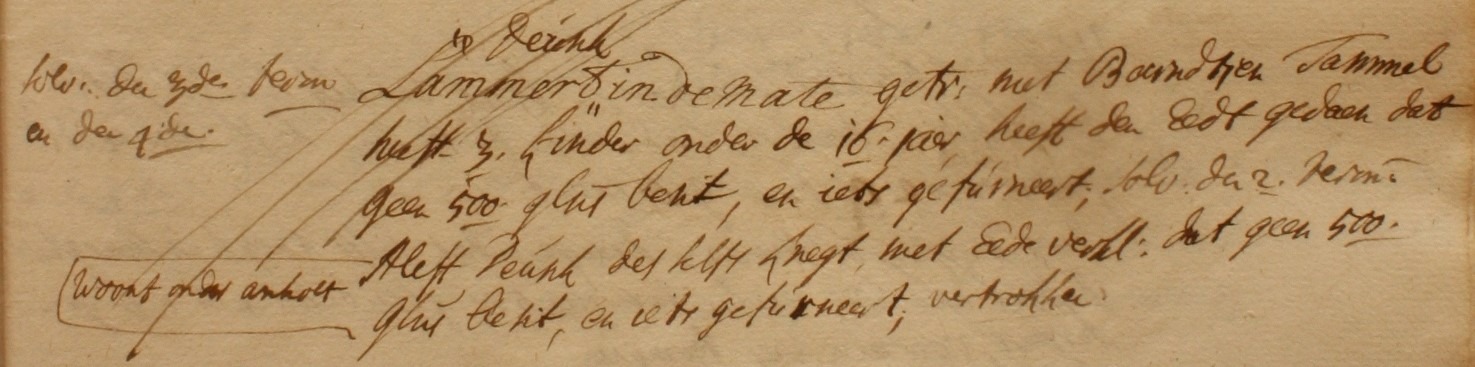 Derck
solv: den 3de termn
en den 4de.
Lammert in de mate getr: met Barndtjen Tammel
heeft 3. kinder onder de 16. jaer heeft den Eedt gedaen dat
geen 500. glns besit, en iets gefurneert; solv. den 2. termn:
Aleff derselfs knegt, met Eede verkl: dat geen 500.
Woont onder anholt
glns besit, en iets gefurneert; vertrokken